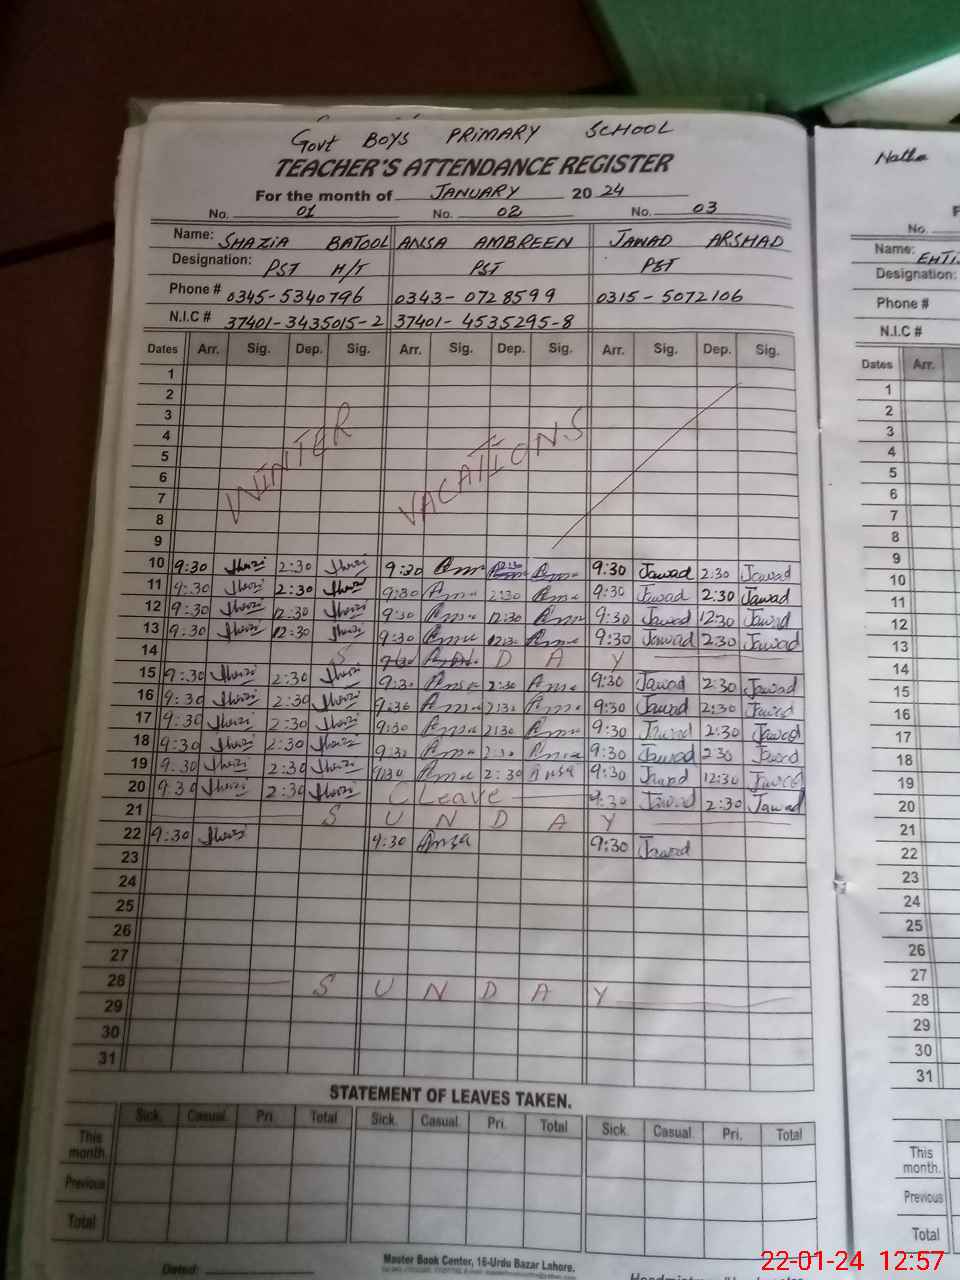 Govt BOYS PRIMARY SCHOOL
TEACHER'S ATTENDANCE REGISTER
For the month of JANUARY 2024
No. 01 No. 02 No. 03
Name: SHAZIA BATOOL ANSA AMBREEN JAWAD ARSHAD
Designation: PST H/T PST PST
Phone # 0345-5340796 0343-0728599 0315-5072106
N.I.C # 37401-3435015-2 37401-4535295-8
Dates Arr. Sig. Dep. Sig. Arr. Sig. Dep. Sig. Arr. Sig. Dep. Sig.
1
2
3
4
5
6
7
8
9
WINTER VACATIONS
10 9:30 2:30 9:30 9:30 Jawad 2:30 Jawad
11 9:30 2:30 9:30 2:30 9:30 Jawad 2:30 Jawad
12 9:30 12:30 9:30 12:30 9:30 Jawad 12:30 Jawad
13 9:30 12:30 9:30 12:30 9:30 Jawad 2:30 Jawad
14 S D A Y
15 9:30 2:30 9:30 2:30 9:30 Jawad 2:30 Jawad
16 9:30 2:30 9:30 2:30 9:30 Jawad 2:30 Jawad
17 9:30 2:30 9:30 2:30 9:30 Jawad 2:30 Jawad
18 9:30 2:30 9:30 2:30 9:30 Jawad 2:30 Jawad
19 9:30 2:30 9:30 2:30 Ansa 9:30 Jawad 12:30 Jawad
20 9:30 2:30 C Leave 9:30 Jawad 2:30 Jawad
21 S U N D A Y
22 9:30 9:30 Ansa 9:30 Jawad
23
24
25
26
27
28 S U N D A Y
29
30
31
STATEMENT OF LEAVES TAKEN.
Sick. Casual. Pri. Total Sick. Casual. Pri. Total Sick. Casual. Pri. Total
This month.
Previous
Total
Master Book Center, 16-Urdu Bazar Lahore.
Dated:
No.
Name: EHTI
Designation:
Phone #
N.I.C #
Dates Arr.
1
2
3
4
5
6
7
8
9
10
11
12
13
14
15
16
17
18
19
20
21
22
23
24
25
26
27
28
29
30
31
This month.
Previous
Total
22-01-24 12:57